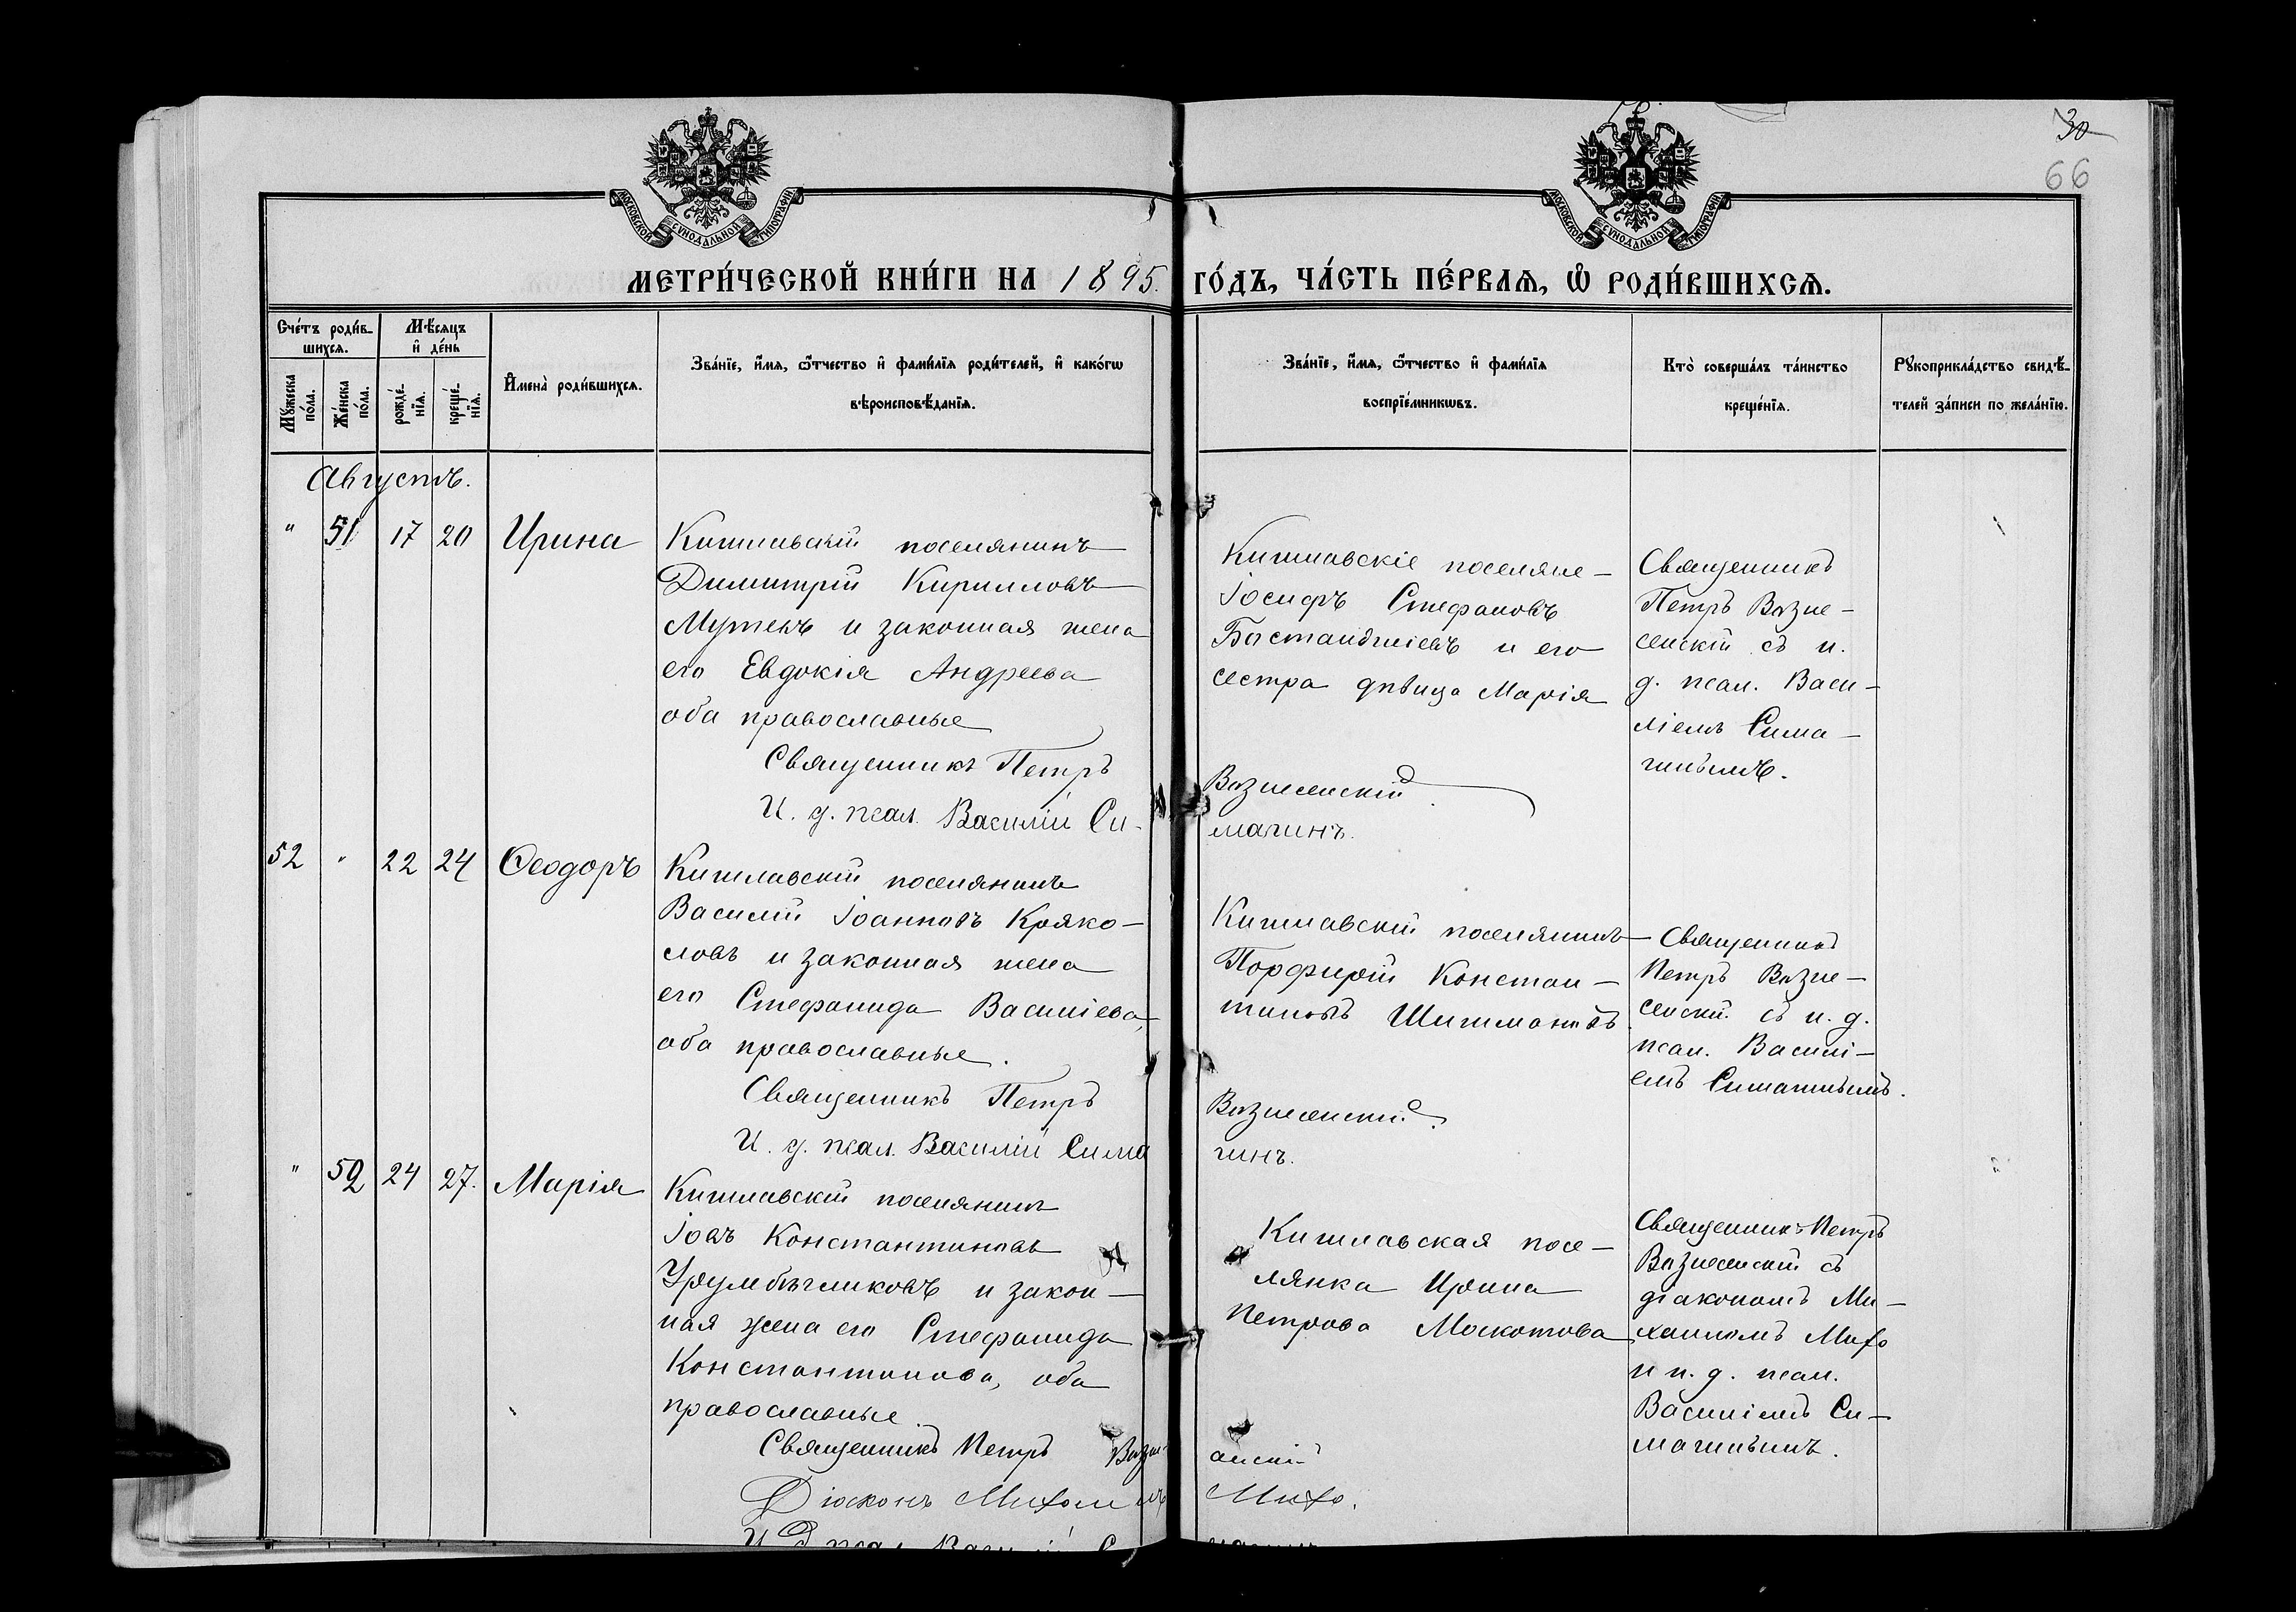 30
66
МОСКОВСКОЙ СУНОДАЛЬНОЙ ТИПОГРАФІИ
МОСКОВСКОЙ СУНОДАЛЬНОЙ ТИПОГРАФІИ
МЕТРИ́ЧЕСКОЙ КНИ́ГИ НА 1895. ГО́ДЪ, ЧА́СТЬ ПЕ́РВАѦ, Ѡ РОДИ́ВШИХСѦ.
Сче́тъ роди́в-
шихсѧ.
Мꙋжеска по́ла.
Же́нска по́ла.
Мѣ́сѧцъ
и҆ де́нь
рожде́-
нїѧ.
креще́-
нїѧ.
И҆мена̀ роди́вшихсѧ.
Зва́нїе, и҆́мѧ, ѻ҆́тчество и҆ фами́лїѧ роди́телей, и҆ како́гѡ
вѣроисповѣ́данїѧ.
Зва́нїе, и҆́мѧ, ѻ҆́тчество и҆ фами́лїѧ
воспрїе́мникѡвъ.
Кто̀ соверша́лъ та́инство
креще́нїѧ.
Рꙋкоприкла́дство свидѣ́-
телей за́писи по жела́нїю.
Августъ.
" 51 17 20 Ирина
Кишлавскій поселянинъ
Димитрій Кирилловъ
и законная жена
его Евдокія Андреева
оба православные
Священникъ Петръ Вознесенскій
И. д. псал. Василій Си-
магинъ.
Кишлавскіе поселяне
Іосифъ Стефановъ
Бостанджіевъ и его
сестра дѣвица Марія
Священникъ
Петръ Возне-
сенскій съ и.
д. псал. Васи-
ліемъ Сима-
гинымъ.
52 " 22 24 Ѳеодоръ
Кишлавскій поселянинъ
Василій Іоанновъ Кряко-
словъ и законная жена
его Стефанида Василіева,
оба православные.
Священникъ Петръ Вознесенскій.
И. д. псал. Василій Сима
гинъ.
Кишлавскій поселянинъ
Порфирій Констан-
тиновъ Шишмановъ
Священникъ
Петръ Возне-
сенскій съ и. д.
псал. Василі-
емъ Симагинымъ.
" 52 24 27. Марія
Кишлавскій поселянинъ
Іовъ Константиновъ
и закон-
ная жена его Стефанида
Константинова, оба
православные.
Священникъ Петръ Возне-
сенскій
Діаконъ Михаилъ Михо.
И. д. псал. Василій
Кишлавская посе-
лянка Ирина
Петрова Москотова
Священникъ Петръ
Вознесенскій съ
діакономъ Ми-
хаиломъ Михо
и и. д. псал.
Василіемъ Си-
магинымъ.